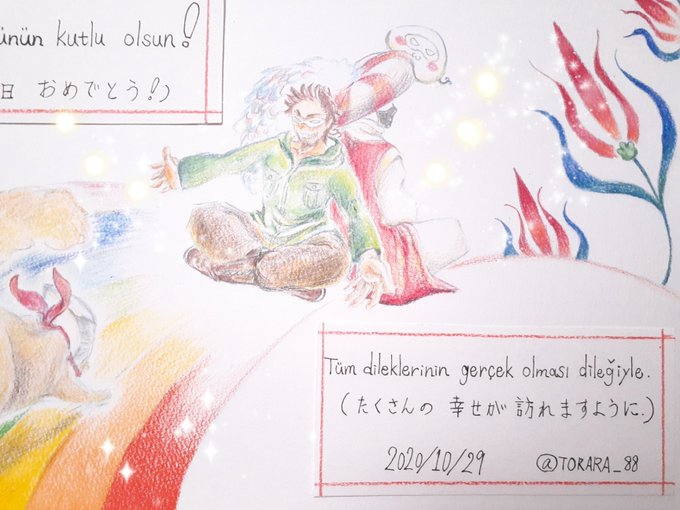 ünün kutlu olsun!
日 おめでとう!)
Tüm dileklerinin gerçek olması dileğiyle.
(たくさんの 幸せが 訪れますように.)
2020/10/29 @TORARA_88